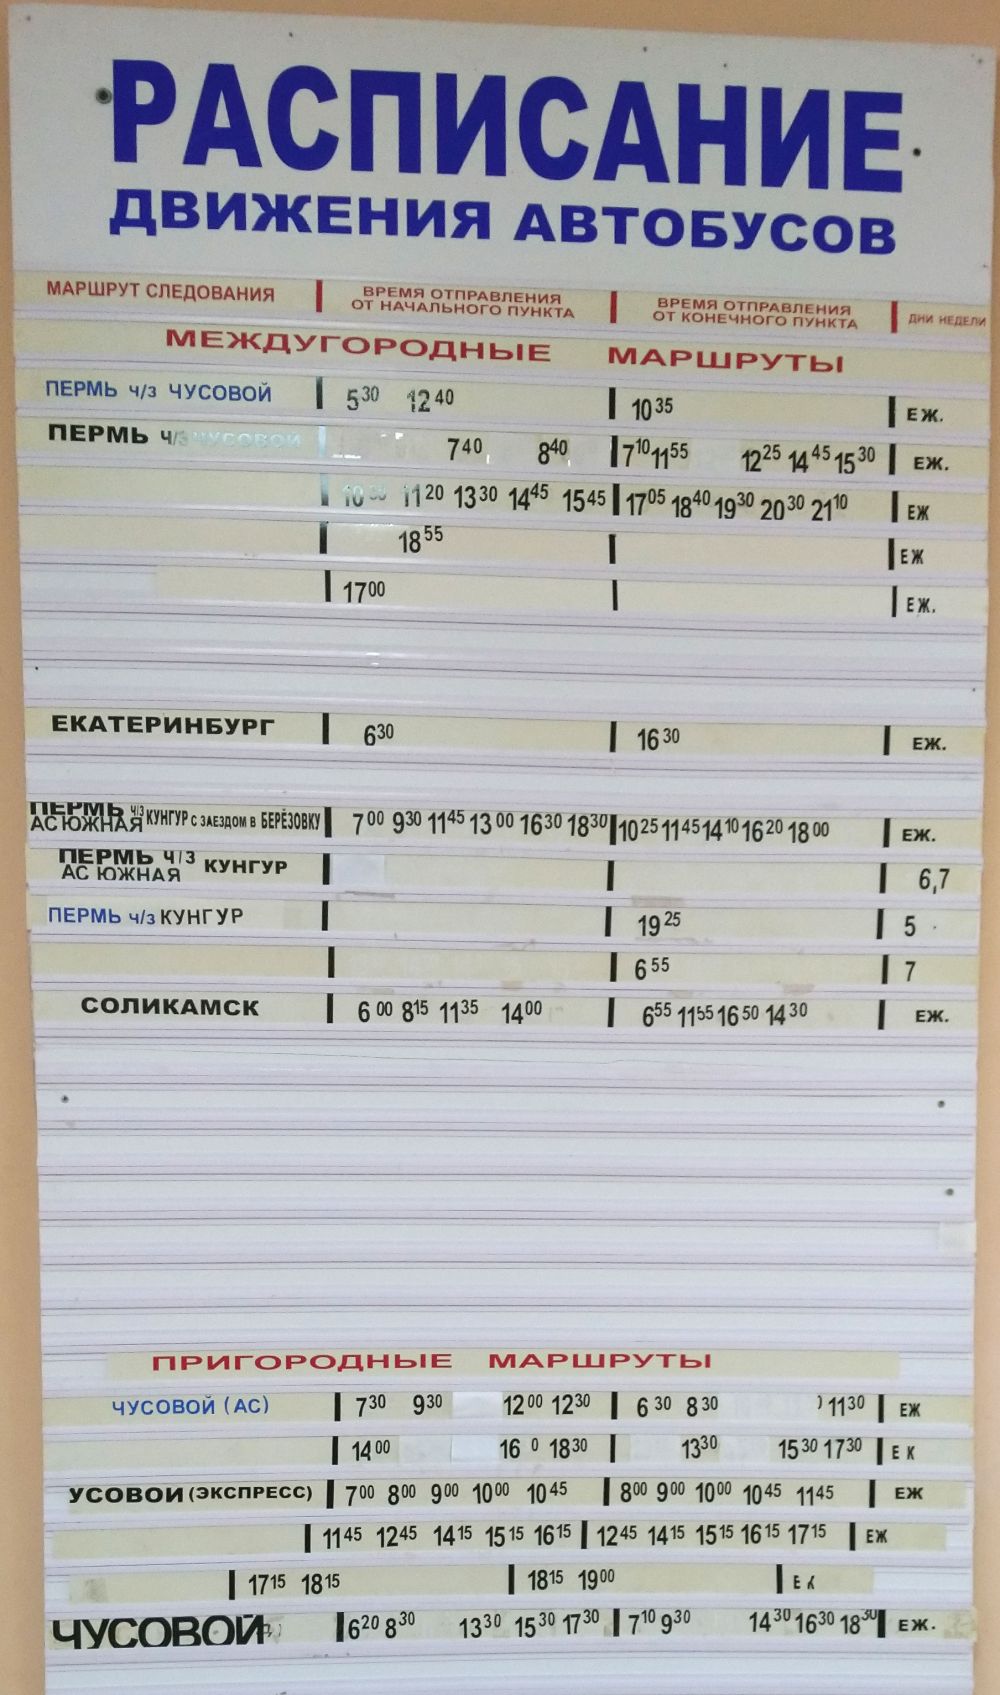 РАСПИСАНИЕ
ДВИЖЕНИЯ АВТОБУСОВ
МАРШРУТ СЛЕДОВАНИЯ ВРЕМЯ ОТПРАВЛЕНИЯ ОТ НАЧАЛЬНОГО ПУНКТА ВРЕМЯ ОТПРАВЛЕНИЯ ОТ КОНЕЧНОГО ПУНКТА ДНИ НЕДЕЛИ
МЕЖДУГОРОДНЫЕ МАРШРУТЫ
ПЕРМЬ ч/з ЧУСОВОЙ 5 30 12 40 10 35 ЕЖ.
ПЕРМЬ ч/з ЧУСОВОЙ 7 40 8 40 7 10 11 55 12 25 14 45 15 30 ЕЖ.
10 11 20 13 30 14 45 15 45 17 05 18 40 19 30 20 30 21 10 ЕЖ
18 55 ЕЖ
17 00 ЕЖ.
ЕКАТЕРИНБУРГ 6 30 16 30 ЕЖ.
ПЕРМЬ ч/з КУНГУР С ЗАЕЗДОМ В БЕРЁЗОВКУ 7 00 9 30 11 45 13 00 16 30 18 30 10 25 11 45 14 10 16 20 18 00 ЕЖ.
АС ЮЖНАЯ
ПЕРМЬ Ч/З КУНГУР 6,7
АС ЮЖНАЯ
ПЕРМЬ ч/з КУНГУР 19 25 5
6 55 7
СОЛИКАМСК 6 00 8 15 11 35 14 00 6 55 11 55 16 50 14 30 ЕЖ.
ПРИГОРОДНЫЕ МАРШРУТЫ
ЧУСОВОЙ (АС) 7 30 9 30 12 00 12 30 6 30 8 30 11 30 ЕЖ
14 00 16 0 18 30 13 30 15 30 17 30 Е К
УСОВОЙ (ЭКСПРЕСС) 7 00 8 00 9 00 10 00 10 45 8 00 9 00 10 00 10 45 11 45 ЕЖ
11 45 12 45 14 15 15 15 16 15 12 45 14 15 15 15 16 15 17 15 ЕЖ
17 15 18 15 18 15 19 00 Е
ЧУСОВОЙ 6 20 8 30 13 30 15 30 17 30 7 10 9 30 14 30 16 30 18 30 ЕЖ.